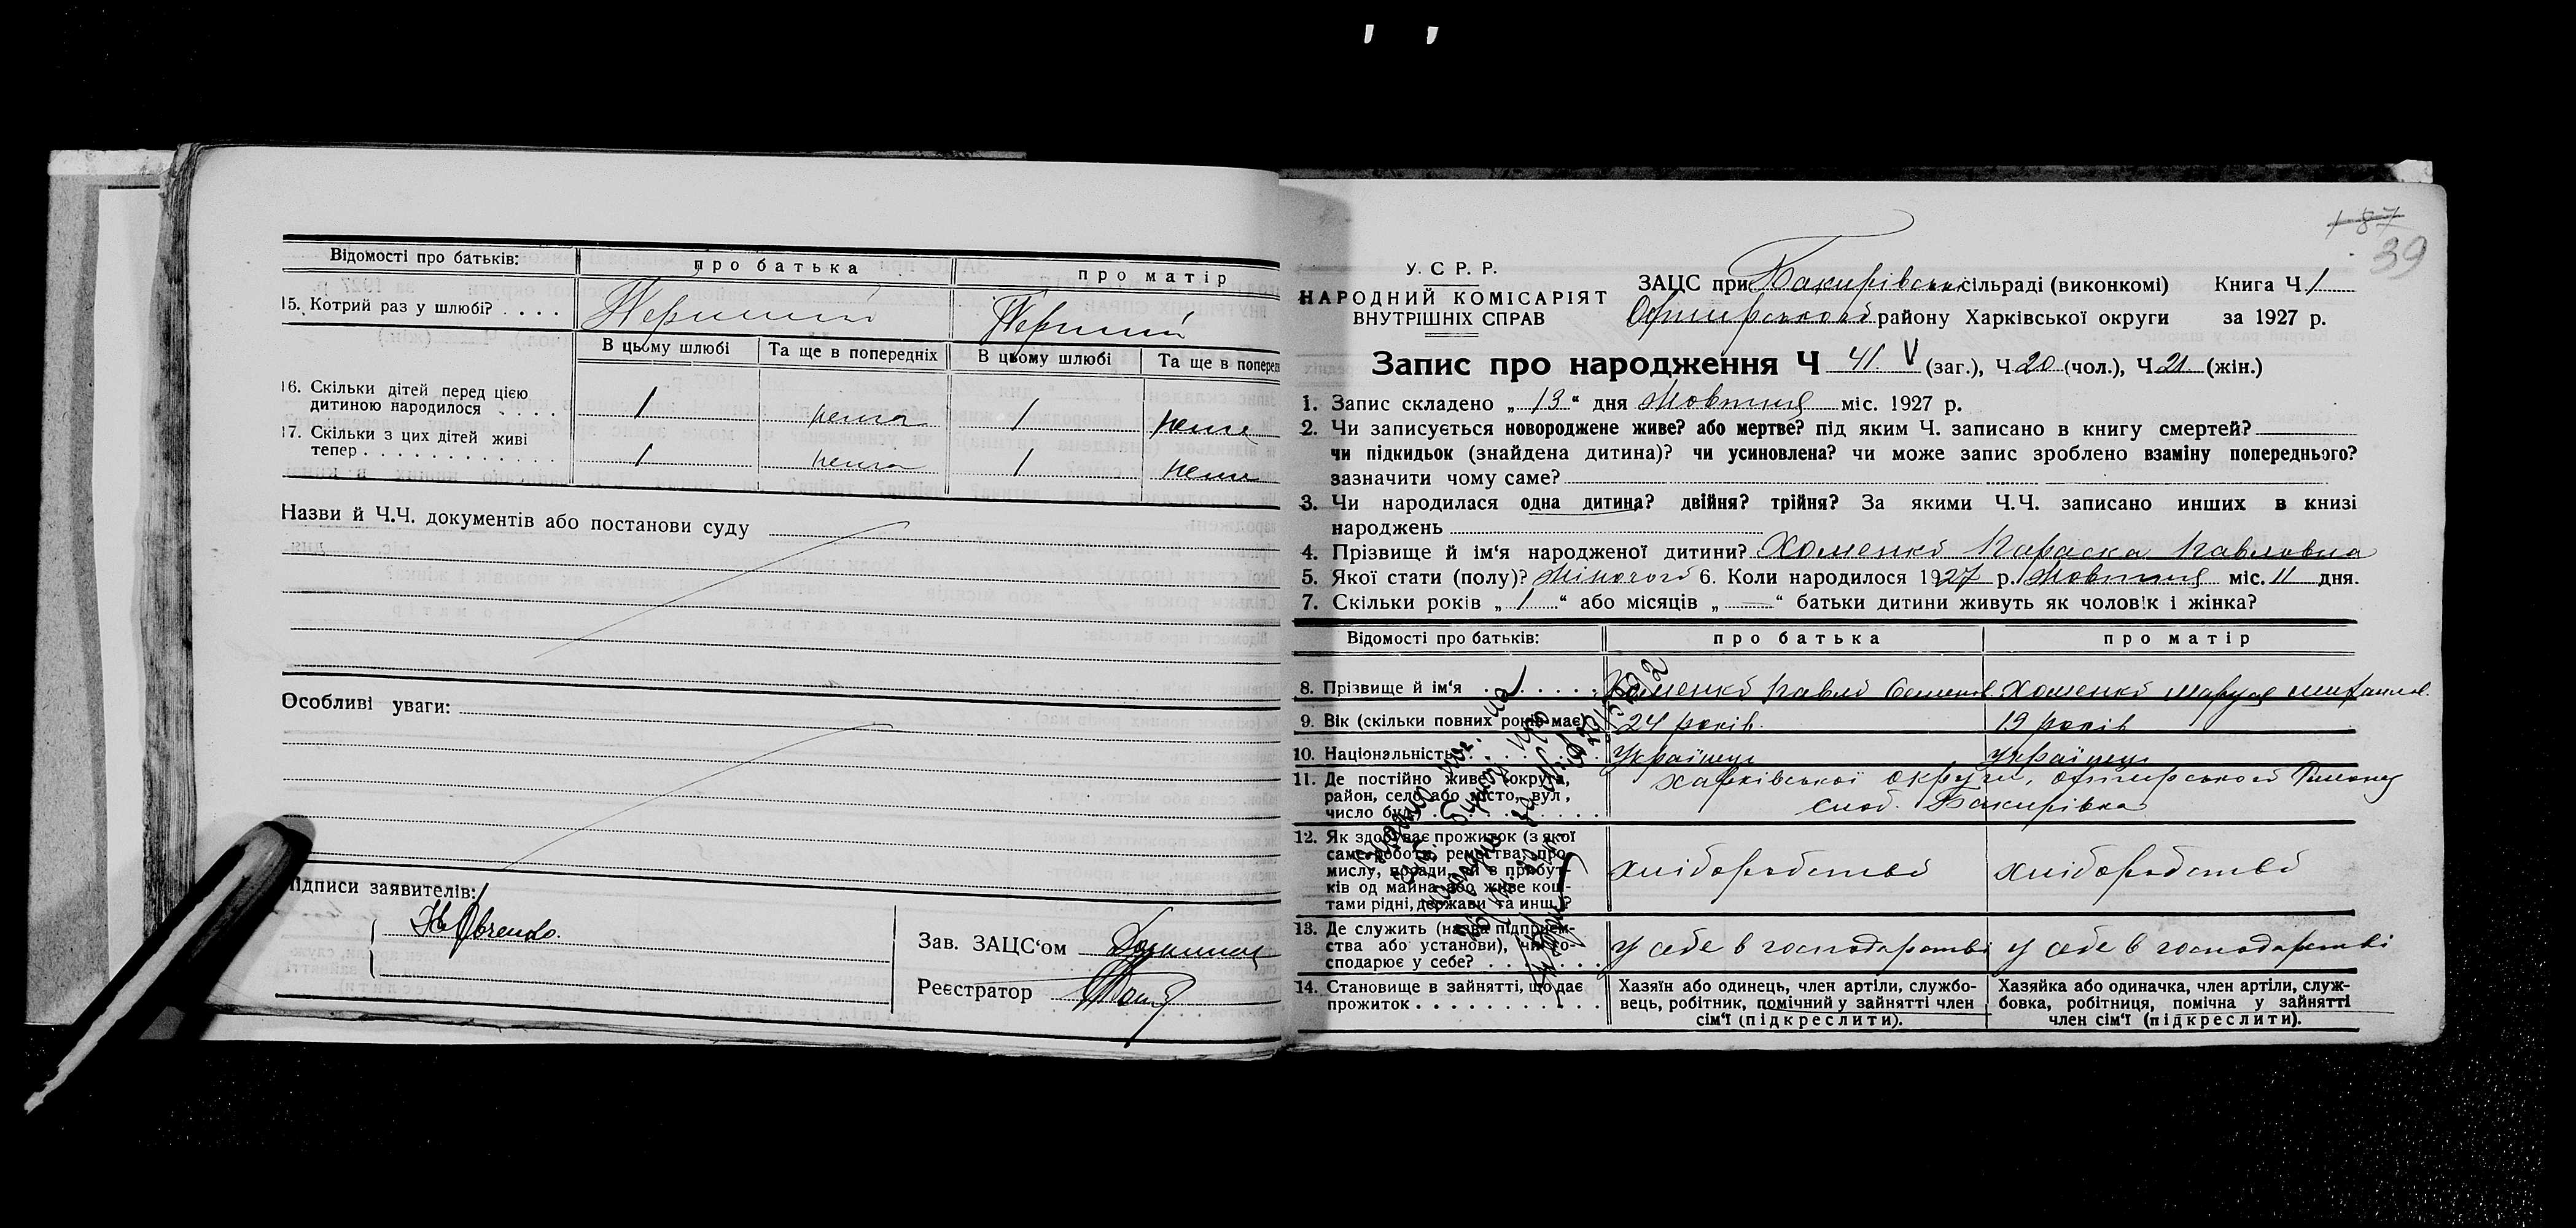 Відомості про батьків: про батька про матір
15. Котрий раз у шлюбі? . . . . Перший Перший
В цьому шлюбі Та ще в попередніх В цьому шлюбі Та ще в поперед
16. Скільки дітей перед цією
дитиною народилося . . . . 1 нема 1 нема
17. Скільки з цих дітей живі
тепер . . . . . . . . . . . . . 1 нема 1 нема
Назви й Ч.Ч. документів або постанови суду
Особливі уваги:
Підписи заявителів:
Зав. ЗАЦС‘ом
Реєстратор
187
39
У. С Р. Р.
НАРОДНИЙ КОМІСАРІЯТ
ВНУТРІШНІХ СПРАВ
ЗАЦС при Бакирівській сільраді (виконкомі) Книга Ч 1
Охтирського району Харківської округи за 1927 р.
Запис про народження Ч 41 V (заг.), Ч 20 (чол.), Ч 21 (жін.)
1. Запис складено „ 13 “ дня Жовтня міс. 1927 р.
2. Чи записується новороджене живе? або мертве? під яким Ч. записано в книгу смертей?
чи підкидьок (знайдена дитина)? чи усиновлена? чи може запис зроблено взаміну попереднього?
зазначити чому саме?
3. Чи народилася одна дитина? двійня? трійня? За якими Ч.Ч. записано инших в книзі
народжень
4. Прізвище й ім‘я народженої дитини? Хоменко Параска Павловна
5. Якої стати (полу)? Жіночого 6. Коли народилося 1927 р. Жовтня міс. 11 дня.
7. Скільки років „ 1 “ або місяців „ — “ батьки дитини живуть як чоловік і жінка?
Відомості про батьків: про батька про матір
8. Прізвище й ім‘я . . . . . . Хоменко Павло Семенов. Хоменко Маруся Михайлов.
9. Вік (скільки повних років має) 24 років 19 років
10. Національність . . . . Українець Українець
11. Де постійно живе (округа,
район, село або місто, вул.,
число буд.) Харківської округи, Охтирського Району
слоб. Бакирівка
12. Як здобуває прожиток (з якої
саме роботи, ремества, про-
мислу, поради, чи з прибут-
ків од майна або живе кош-
тами рідні, держави та инш.)? хліборобство хліборобство
13. Де служить (назва підприєм-
ства або установи), чи го-
сподарює у себе? . . . . . у себе в господарстві у себе в господарстві
14. Становище в зайнятті, що дає
прожиток . . . . . . . . . . .
Хазяїн або одинець, член артіли, службо-
вець, робітник, помічний у зайнятті член
сім‘ї (підкреслити).
Хазяйка або одиначка, член артіли, служ-
бовка, робітниця, помічна у зайнятті
член сім‘ї (підкреслити).